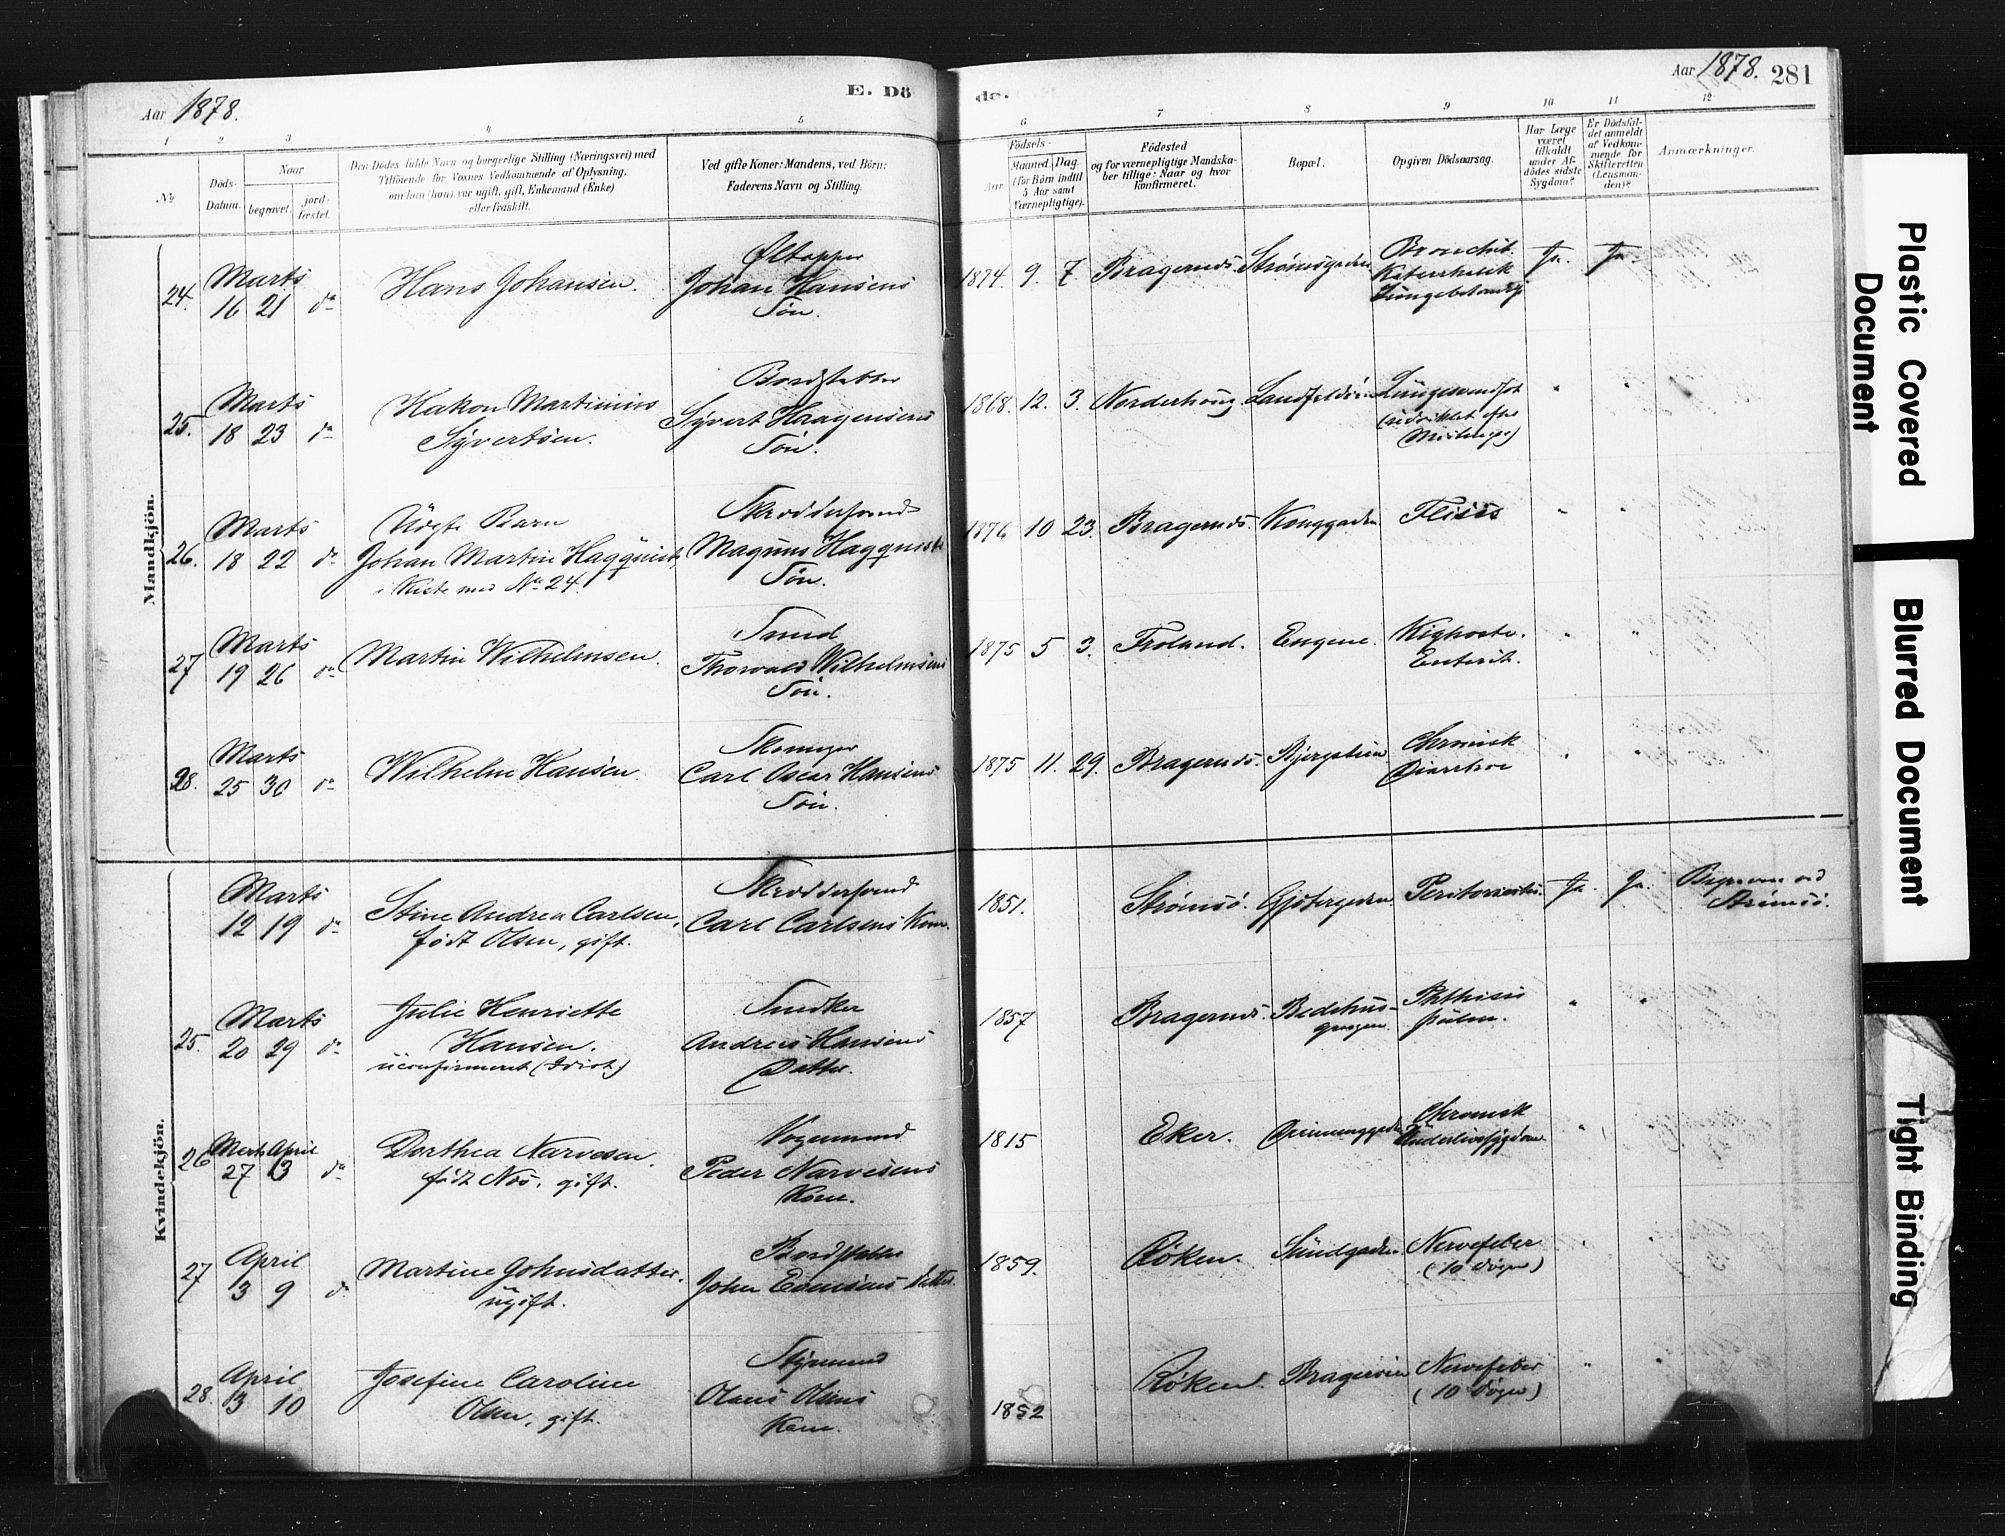 Aar 1878.
E. Dö
de.
Aar 1878. 281
1 2 3 4 5 6 7 8 9 10 11 12
No
Döds-
Datum.
Naar
begravet.
jord-
fæstet.
Den Dödes fulde Navn og borgerlige Stilling (Næringsvei) med
Tilföiende for Voxnes Vedkommende af Oplysning,
om han (hun) var ugift, gift, Enkemand (Enke)
eller fraskilt.
Ved gifte Koner: Mandens, ved Börn:
Faderens Navn og Stilling.
Födsels-
Aar
Maaned.
Dag.
(for Börn indtil
5 Aar samt
Værnepligtige).
Födested
og for værnepligtige Mandska-
ber tillige: Naar og hvor
konfirmeret.
Bopæl.
Opgiven Dödsaarsag.
Har Læge
været
tilkaldt
under Af-
dödes sidste
Sygdom?
Er Dödsfal-
det anmeldt
af Vedkom-
mende for
Skifteretten
(Lensman-
den)?
Anmærkninger.
Mandkjön.
24. Marts
16 21 do
Hans Johansen.
Øltapper
Johan Hansens
Søn.
1874. 9. 7 Bragernæs. Strømsgaden
Bronchit.
Katerrhalsk
Lungebetændelse
Ja. Ja.
25. Marts
18 23 do
Hakon Martinius
Syvertsen.
Bordstabler
Syvert Haagensens
Søn.
1868. 12. 3. Norderhoug
26. Marts
18 22 do
Uægte Barn
Johan Martin Hagqvist,
i Kiste med No 24.
Skræddersvend
Magnus Hagqvists
Søn.
1876 10 23. Bragernæs. Konggaden.
27 Marts
19 26 do
Martin Wilhelmsen.
Smed
Thorvald Wilhelmsens
Søn.
1875 5 3. Froland. Engene.
Kighoste.
Enterit.
28. Marts
25 30 do
Wilhelm Hansen.
Skomager
Carl Oscar Hansens
Søn.
1875 11. 29. Bragernæs. Bjergstien
Chronisk
Diarrhoe
Kvindekjön.
Marts
12 19 do
Stine Andrea Carlsen,
født Olsen, gift.
Skræddersvend
Carl Carlsens Kone.
1851. Strømsø. Gjetergaden Peritonitis. Ja. Ja.
Begraven ved
Strømsø.
25. Marts
20 29 do
Julie Henriette
Hansen.
uconfirmeret (Idiot)
Snedker
Andreas Hansens
Datter.
1857 Bragernæs.
Bedehus-
gangen.
Phthisis
pulm.
26 Marts April
27 3 do
Dorthea Narvesen.
født Næs. gift.
Vognmand
Peder Narvesens
Kone.
1815 Eker.
Chronisk
Underlivssygdom
27 April
3 9 do
Martine Johnsdatter.
ugift.
Bordstabler
John Evensens Datter.
1859. Røken. Sundgaden
Nervefeber
(10 Døgn)
28. April
3 10
Josefine Caroline
Olsen, gift.
Styrmand
Olaus Olsens
Kone.
1852 Røken. Bragerøen
Nervefeber
(10 Døgn)
Plastic Covered
Document
Blurred Document
Tight Binding